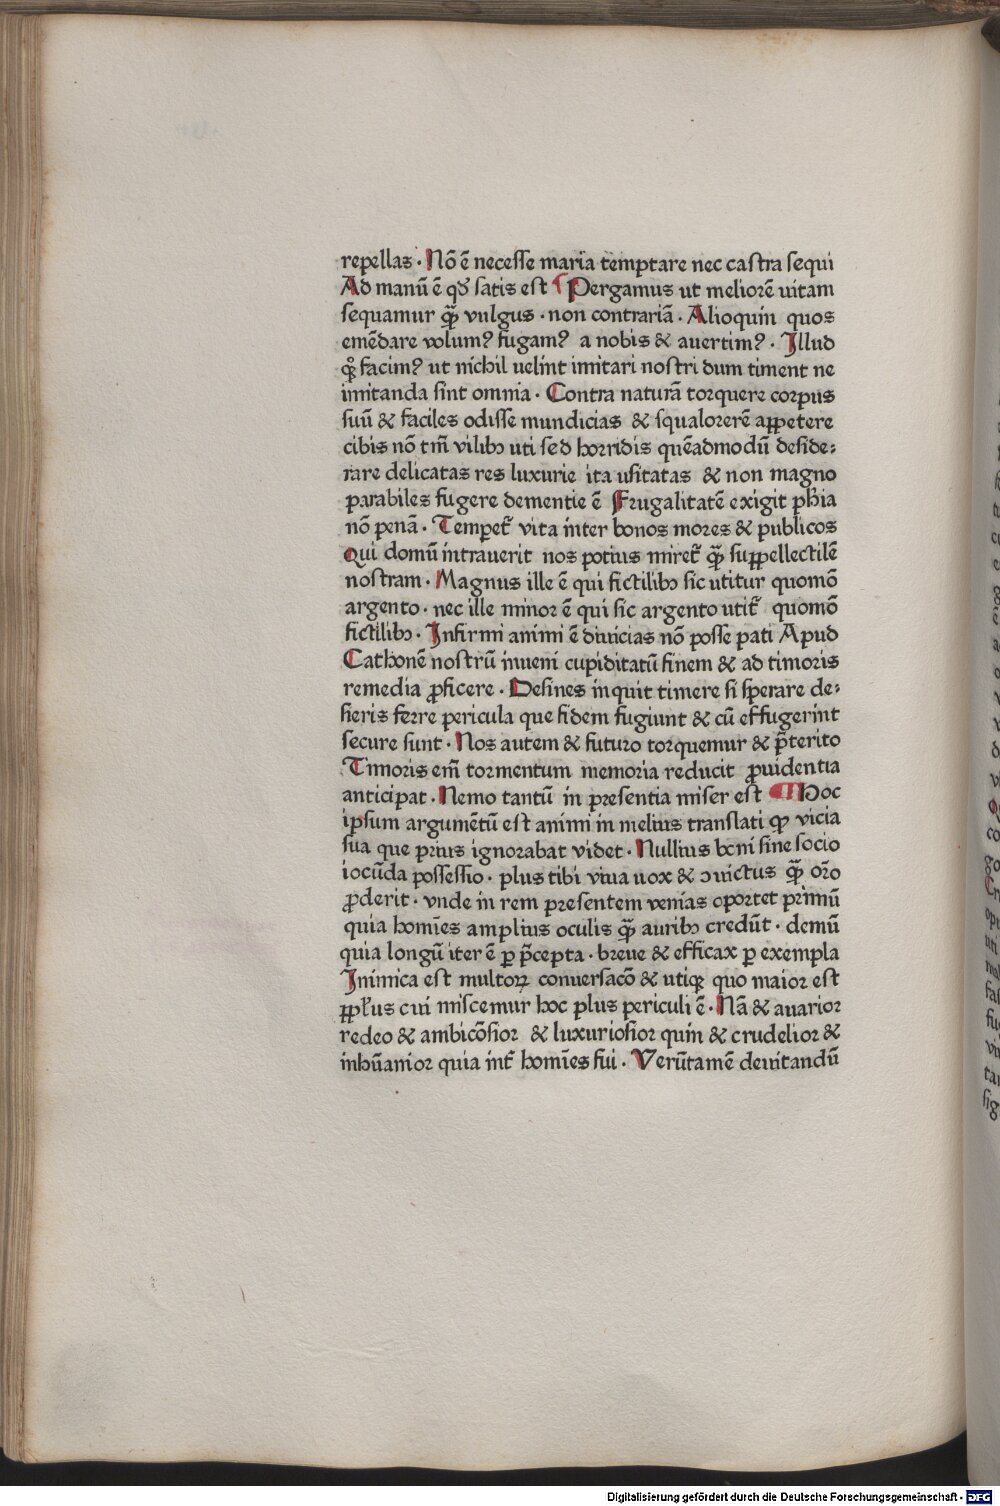 repellas · Nõ ē necesse maria temptare nec castra sequi
Ad manū ē qđ satis est ¶ Pergamus ut meliorē uitam
sequamur qᷓ vulgus · non contrariā · Alioquin quos
emēdare volumꝰ fugamꝰ a nobis & auertimꝰ · Illud
qͦꝫ facimꝰ ut nichil uelint imitari nostri dum timent ne
imitanda sint omnia · Contra naturā torquere corpus
suū & faciles odisse mundicias & squalorerē aꝑpetere
cibis nō tm̄ vilibꝫ uti sed horridis quēadmodū deside:
rare delicatas res luxurie ita usitatas & non magno
parabiles fugere dementie ē Frugalitatē exigit ph̄ia
nō penā · Temperet᷑ vita inter bonos mores & publicos
Qui domū intrauerit nos potius miret᷑ qᷓ suꝑpellectilē
nostram · Magnus ille ē qui fictilibꝫ sic utitur quomō
argento · nec ille minor ē qui sic argento utit᷑ quomō
fictilibꝫ · Infirmi animi ē diuicias nō posse pati Apud
Cathonē nostrū inueni cupiditatū finem & ad timoris
remedia ꝓficere · Desines inquit timere si sperare de:
sieris ferre pericula que fidem fugiunt & cū effugerint
secure sunt · Nos autem & futuro torquemur & p̄terito
Timoris em̄ tormentum memoria reducit ꝓuidentia
anticipat · Nemo tantū in presentia miser est ¶ Hoc
ipsum argumētū est animi in melius translati qꝫ vicia
sua que prius ignorabat videt · Nullius boni sine socio
iocūda possessio · plus tibi viua uox & ɔuictus qᷓ or̄o
ꝓderit · vnde in rem presentem venias oportet primū
quia homīes amplius oculis qᷓ auribꝫ credūt · demū
quia longū iter ē ꝑ p̄cepta · breue & efficax ꝑ exempla
Inimica est multoꝝ conuersacō & utiqꝫ quo maior est
ꝑpl̄us cui miscemur hoc plus periculi ē · Nā & auarior
redeo & ambicōsior & luxuriosior quin & crudelior &
inhūanior quia int᷑ homīes fui · Verūtamē deuitandū
Digitalisierung gefördert durch die Deutsche Forschungsgemeinschaft - DFG